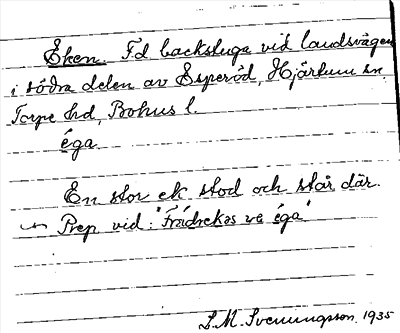 Eken. Fd backstuga vid landsvägen
i södra delen av Esperöd, Hjärtum sn.
Torpe hd, Bohus l.
éga
En stor ek stod och står där.
Prep. vid: "Frädrekas va éga"
S.M. Svenningsson. 1935